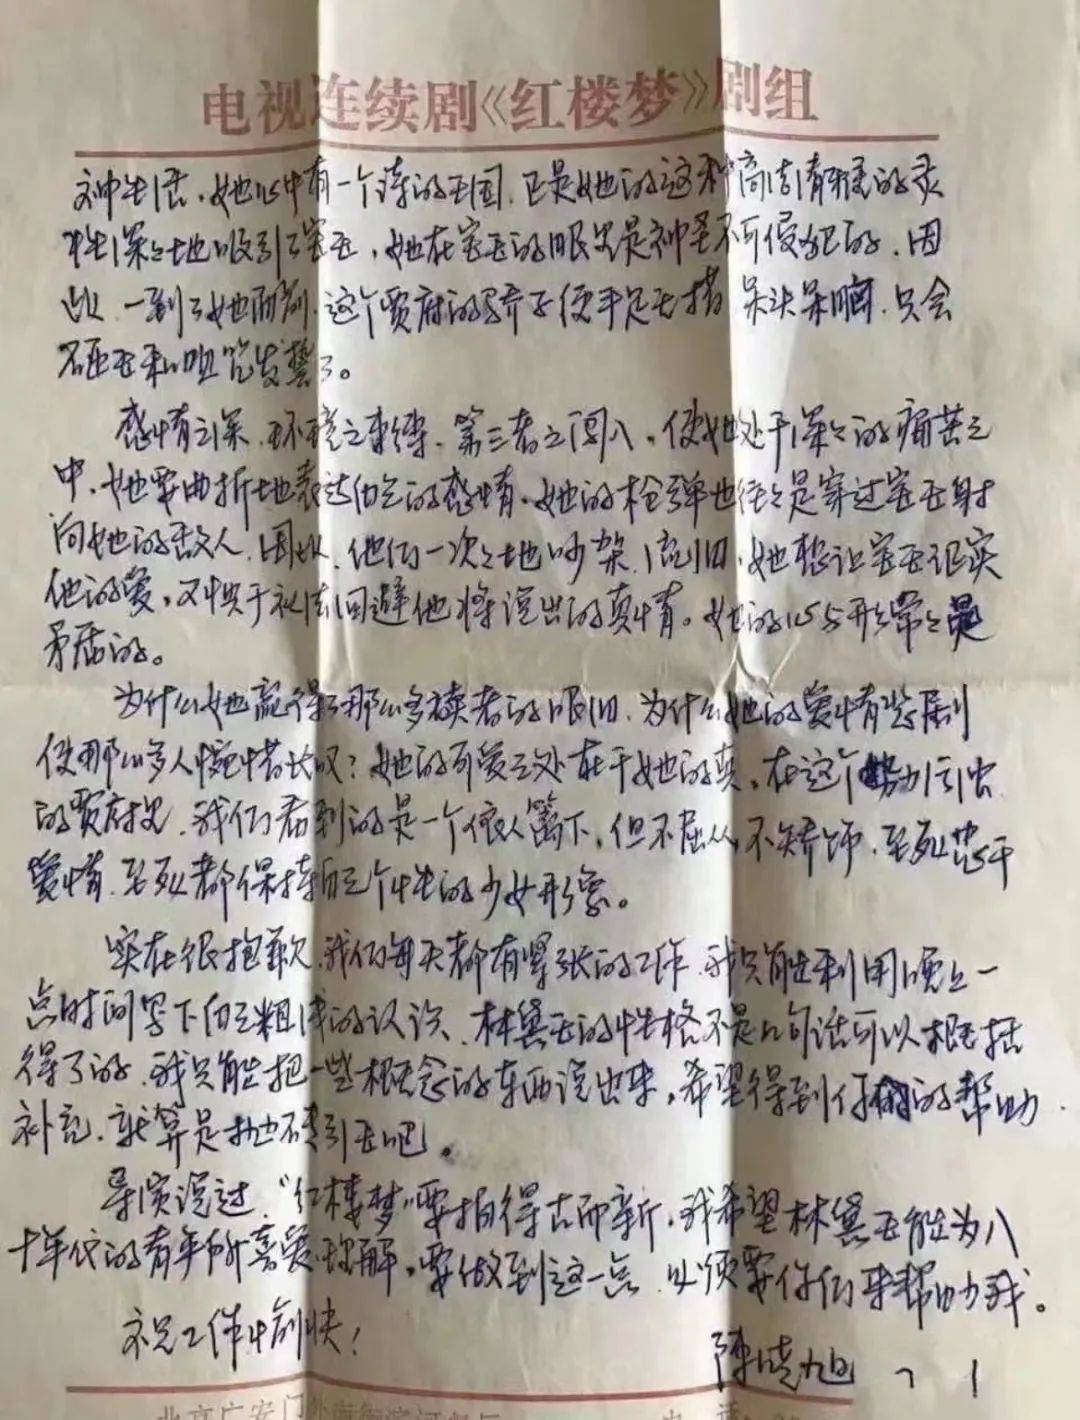 电视连续剧《红楼梦》剧组
神生活，她心中有一个诗的王国，正是她的这种高洁清雅的灵
性深深地吸引了宝玉，她在宝玉的眼里是神圣不可侵犯的，因
此，一到了她面前，这个贾府的骄子便手足无措，呆头呆脑，只会
砸玉和咀咒发誓了。
感情之深，环境之束缚，第三者之闯入，使她处于深深的痛苦之
中，她要曲折地表达自己的感情，她的枪弹也往往是穿过宝玉射
向她的敌人，因此，他们一次次地吵架，流泪，她想让宝玉证实
他的爱，又惧于礼法回避他将说出的真情。她的心与形常常是
矛盾的。
为什么她赢得了那么多读者的眼泪，为什么她的爱情悲剧
使那么多人惋惜长叹？她的可爱之处在于她的真，在这个势力
的贾府里，我们看到的是一个依人篱下，但不屈从，不矫饰，至死忠于
爱情，至死都保持自己个性的少女形象。
实在很抱歉，我们每天都有紧张的工作，我只能利用晚上一
点时间写下自己粗浅的认识，林黛玉的性格不是几句话可以概括
得了的，我只能把一些概念的东西说出来，希望得到你们的帮助
补充，就算是抛砖引玉吧。
导演说过，“红楼梦”要拍得古而新，我希望林黛玉能为八
十年代的青年所喜爱、理解，要做到这一点，必须要你们来帮助我。
祝工作愉快！
陈晓旭 7 1